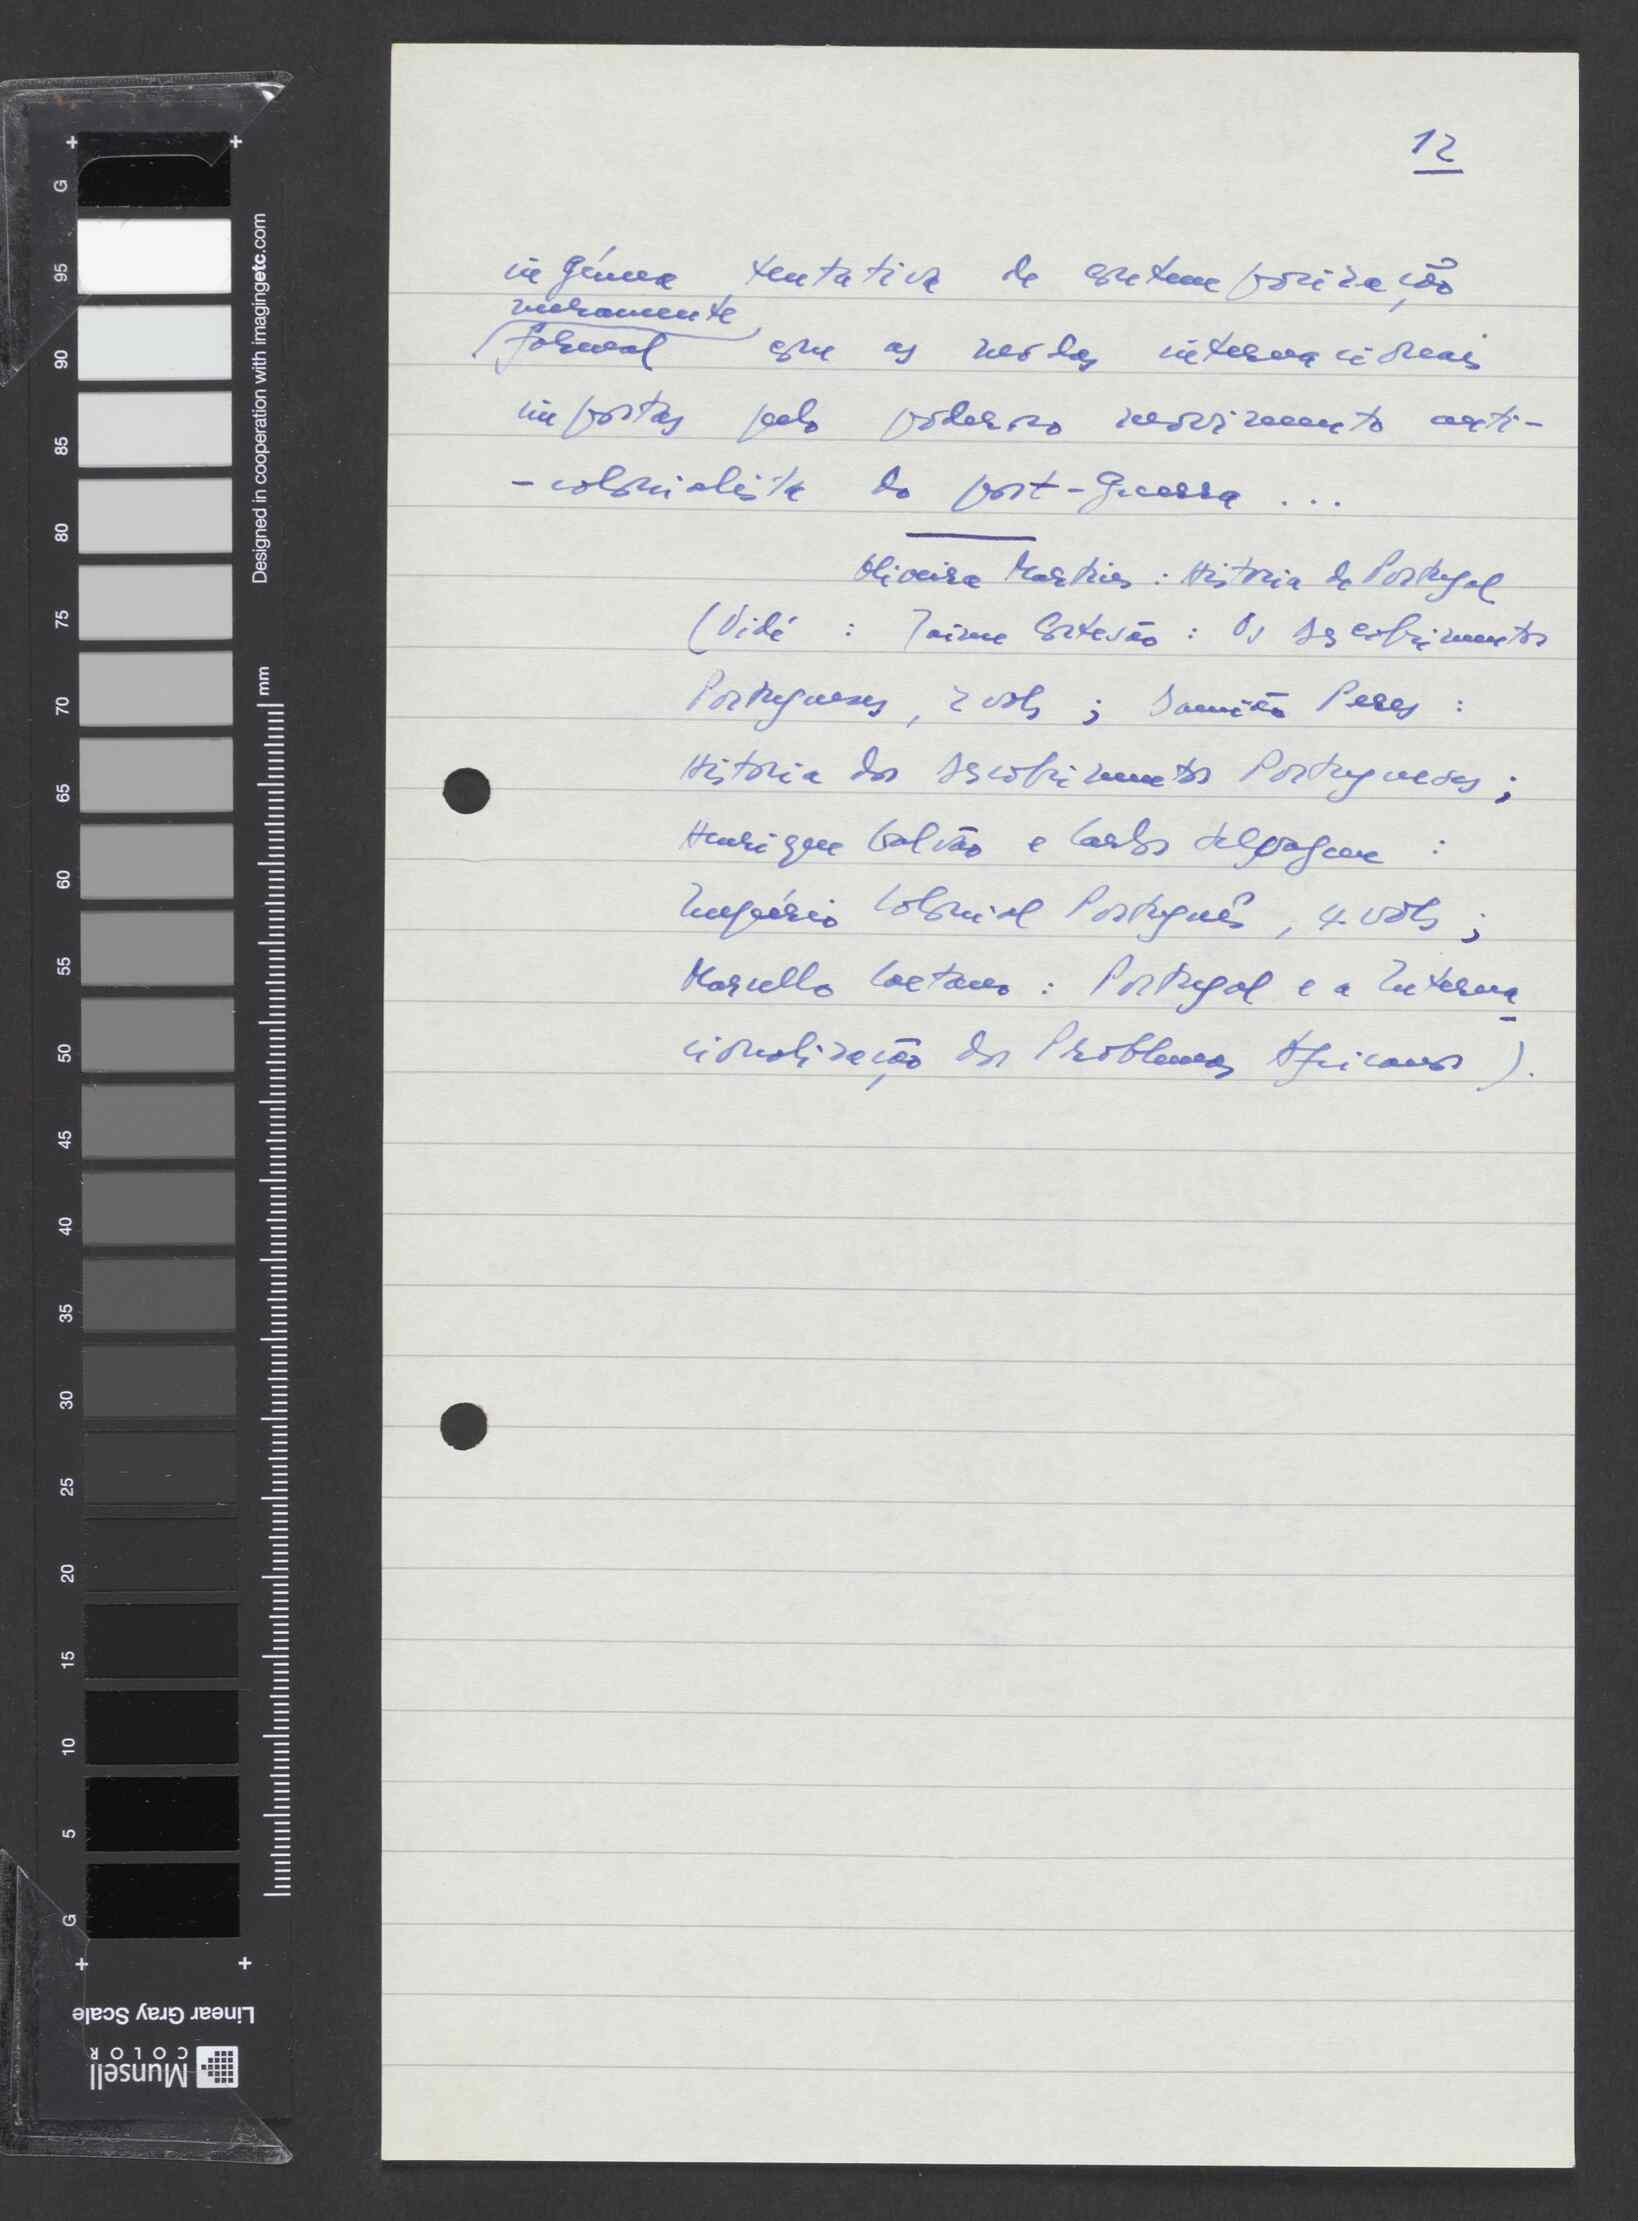 12
ingénua tentativa de contemporização
meramente
formal com as modas internacionais
impostas pelo poderoso movimento anti-
-colonialista do post-guerra ...
Oliveira Martins : Historia de Portugal
(Vidé : Jaime Cortesão : Os Descobrimentos
Portugueses, 2 vols ; Damião Peres :
Historia dos Descobrimentos Portugueses ;
Henrique Galvão e Carlos Selvagem :
Império Colonial Português, 4 vols ;
Marcello Caetano : Portugal e a Interna
cionalização dos Problemas Africanos ).
G 95 90 85 80 75 70 65 60 55 50 45 40 35 30 25 20 15 10 5 G
Designed in cooperation with imagingetc.com
mm
Linear Gray Scale
Munsell
COLOR